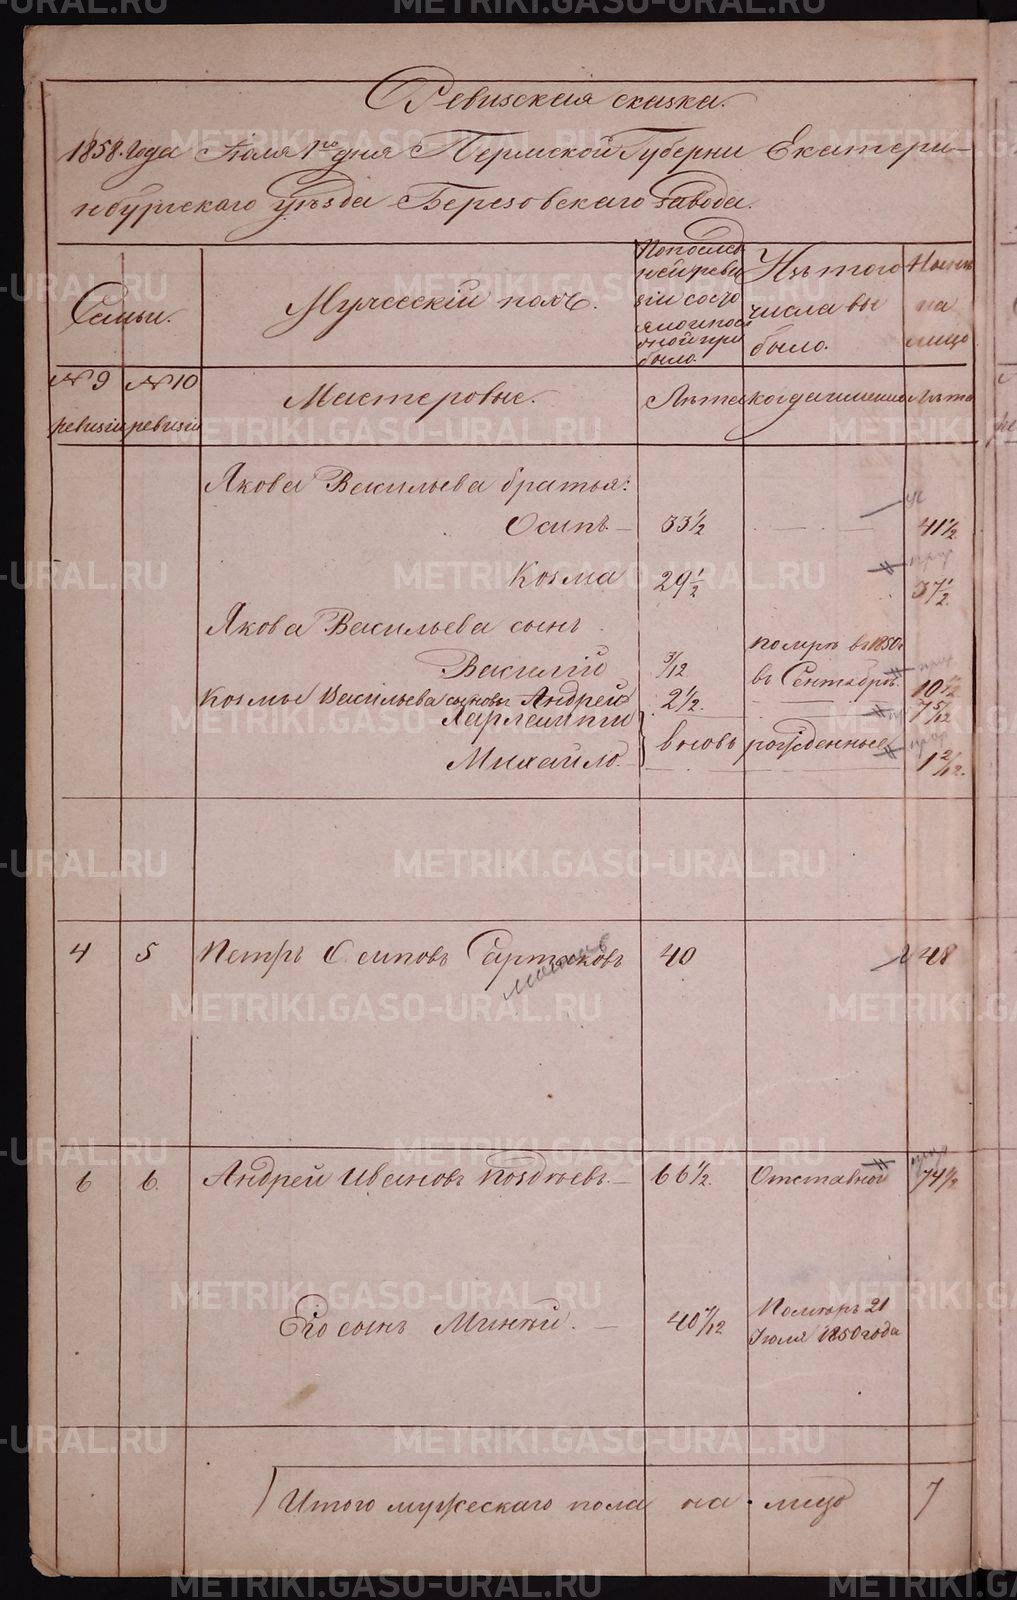 Ревизская сказка.
1858. Года Июля 1го дня Пермской Губерни Екатери-
нбургскаго уѣзда Березовскаго завода.
Семьи.
Мужескій полъ.
По послед
ней реви
зіи состо
яло и пос
оной при
было.
Изъ того
числа вы
было.
Нынѣ
на
лицо
№ 9 № 10
ревизіи ревизіи
Мастеровые.
Лѣта когда именно Лѣта
Якова Васильева братья:
Осипъ — 33 1/2 41 1/2
Козма 29 1/2 37 1/2
Якова Васильева сынъ
Василій 3/12 помръ въ 1850 г
въ Сентябрѣ
Козмы Васильева сыновья Андрей 2 1/2. 10 1/2
Харлампій 7 5/12
вновь рожденные
Михайло. 1 2/12.
4 5 Петръ Осиповъ Сартаковъ 40 48
6 6. Андрей Ивановъ Поздѣевъ. — 66 1/2. Отставной 74 1/2
Его сынъ Минѣй. — 40 7/12 Помѣръ 21
Июля 1850 года
Итого мужескаго пола на лицо 7
METRIKI.GASO-URAL.RU